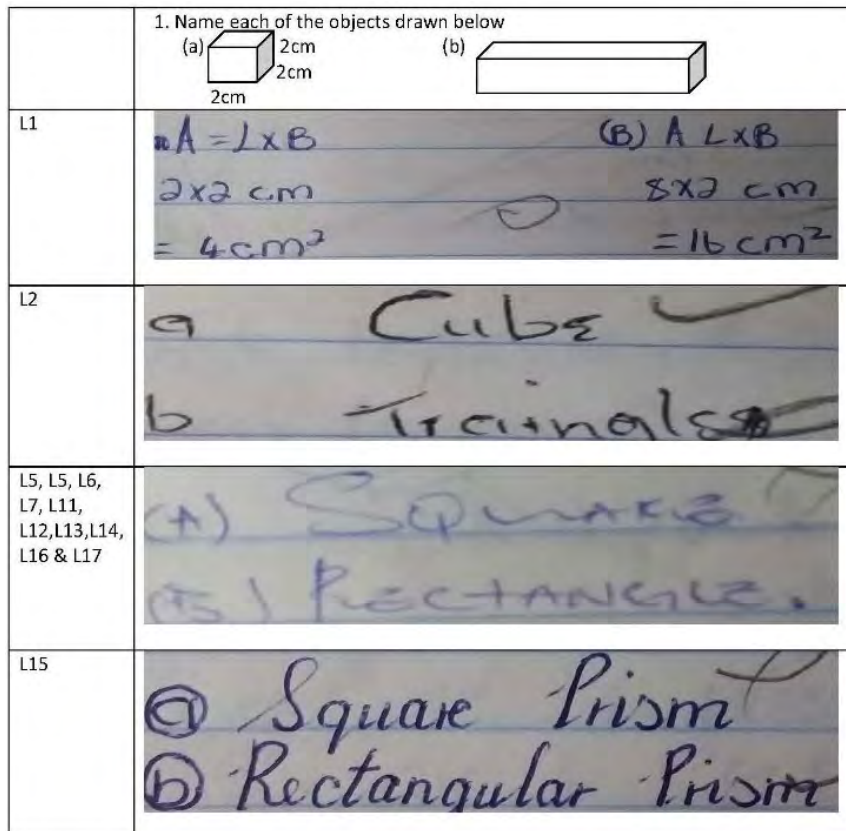 1. Name each of the objects drawn below
(a) 2cm (b)
2cm
2cm
L1
A = L x B (B) A L x B
2x2 cm 8x2 cm
= 4cm² = 16cm²
L2
a Cube
b
L5, L5, L6,
L7, L11,
L12,L13,L14,
L16 & L17
(A) SQUARE
(B) RECTANGLE.
L15
(a) Square Prism
(b) Rectangular Prism